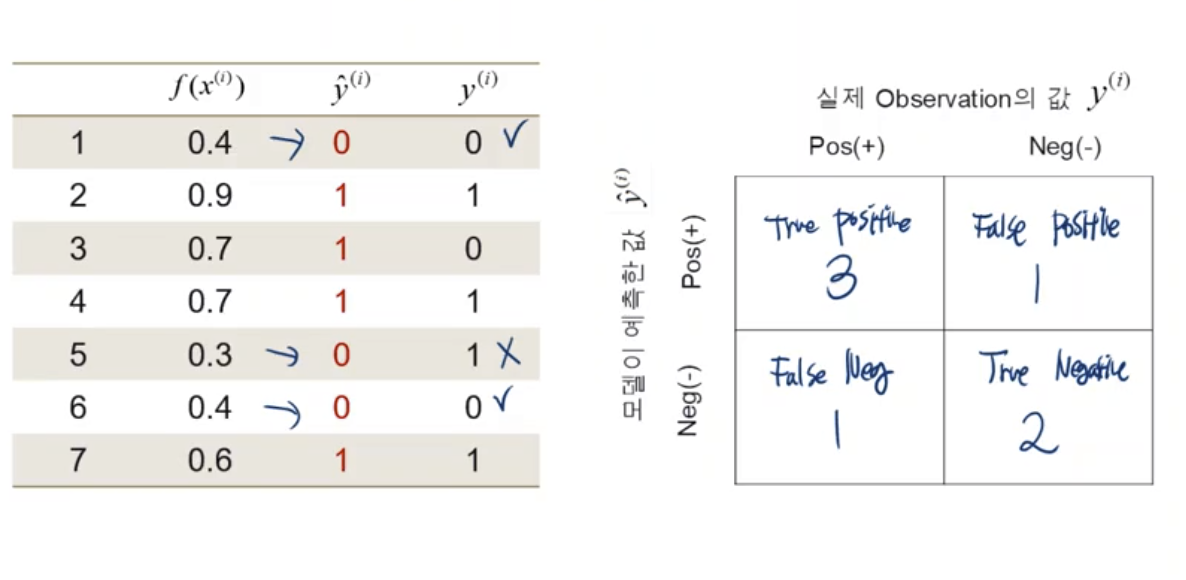 f(x⁽ⁱ⁾) ŷ⁽ⁱ⁾ y⁽ⁱ⁾
1 0.4 → 0 0 ✓
2 0.9 1 1
3 0.7 1 0
4 0.7 1 1
5 0.3 → 0 1 ✗
6 0.4 → 0 0 ✓
7 0.6 1 1
실제 Observation의 값 y⁽ⁱ⁾
Pos(+) Neg(-)
모델이 예측한 값 ŷ⁽ⁱ⁾
Pos(+)
True positive False Positive
3 1
Neg(-)
False Neg True Negative
1 2